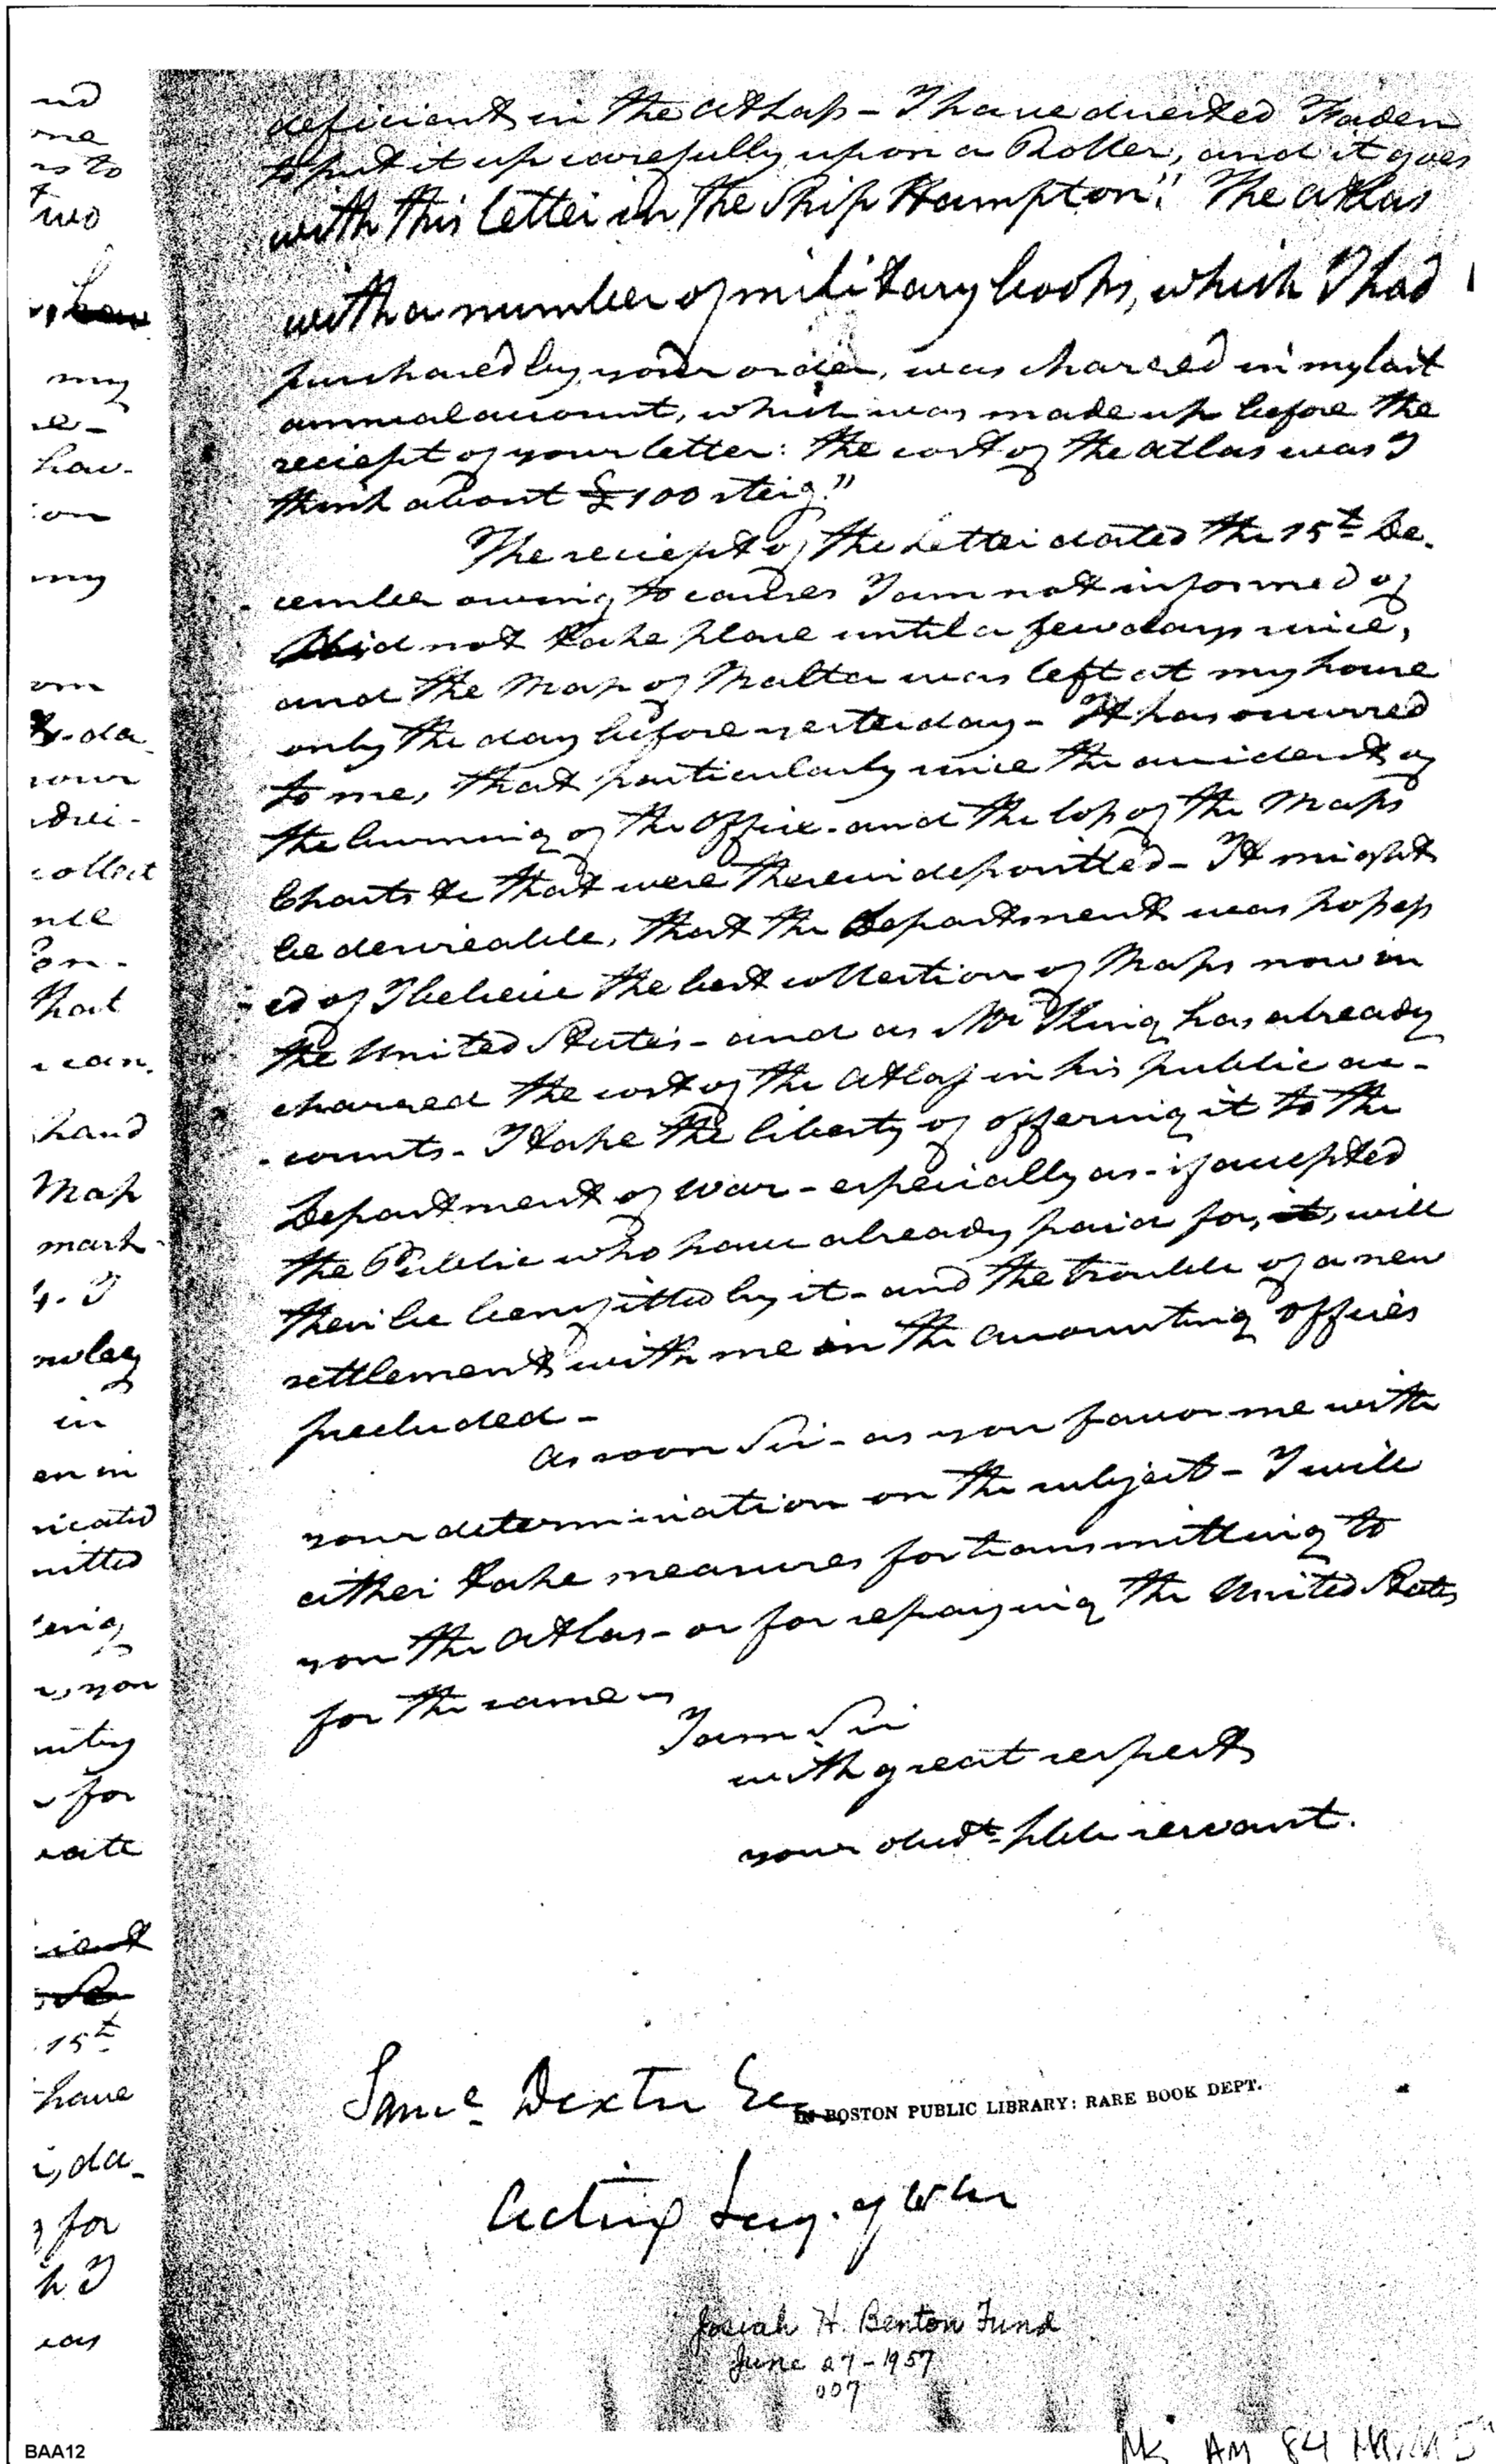 deficient in the Atlass - I have directed Faden
to put it up carefully upon a Roller, and it goes
with this letter in the Ship Hampton." The atlas
with a number of military books, which I had
purchased by your order, was charged in my last
annual account, which was made up before the
reciept of your letter: the cost of the atlas was I
think about £100 sterg."
The reciept of the Letter dated the 15th De.
cember owing to causes I am not informed of
did not take place until a few days since,
and the Map of Malta was left at my house
only the day before yesterday - It has occurred
to me, that particularly since the accident of
the burning of the Office. and the loss of the Maps
Charts &c that were therein deposittted - It might
be desireable, that the Department was possess
ed of I believe the best collection of Maps now in
the United States - and as Mr King has already
charged the cost of the Atlass in his public ac-
counts - I take the liberty of offering it to the
Department of War - especially as - if accepted
the Public who have already paid for, it, will
then be benefitted by it - and the trouble of a new
settlement with me in the accounting offices
precluded -
As soon Sir - as you favor me with
your determination on the subject - I will
either take measures for transmitting to
you the Atlas - or for repaying the United States
for the same
I am Sir
with great respect
your obedt. servant.
Saml. Dexter Esq
Acting Secy. of War
IN BOSTON PUBLIC LIBRARY: RARE BOOK DEPT.
Josiah H. Benton Fund
June 27-1957
007
nd
me
rs to
two
my
hav-
ion
my
om
da
your
collect
nce
that
can.
hand
Map
mark
4. I
in
en in
nicated
mitted
you
for
cate
15th
have
da
for
h I
was
BAA12